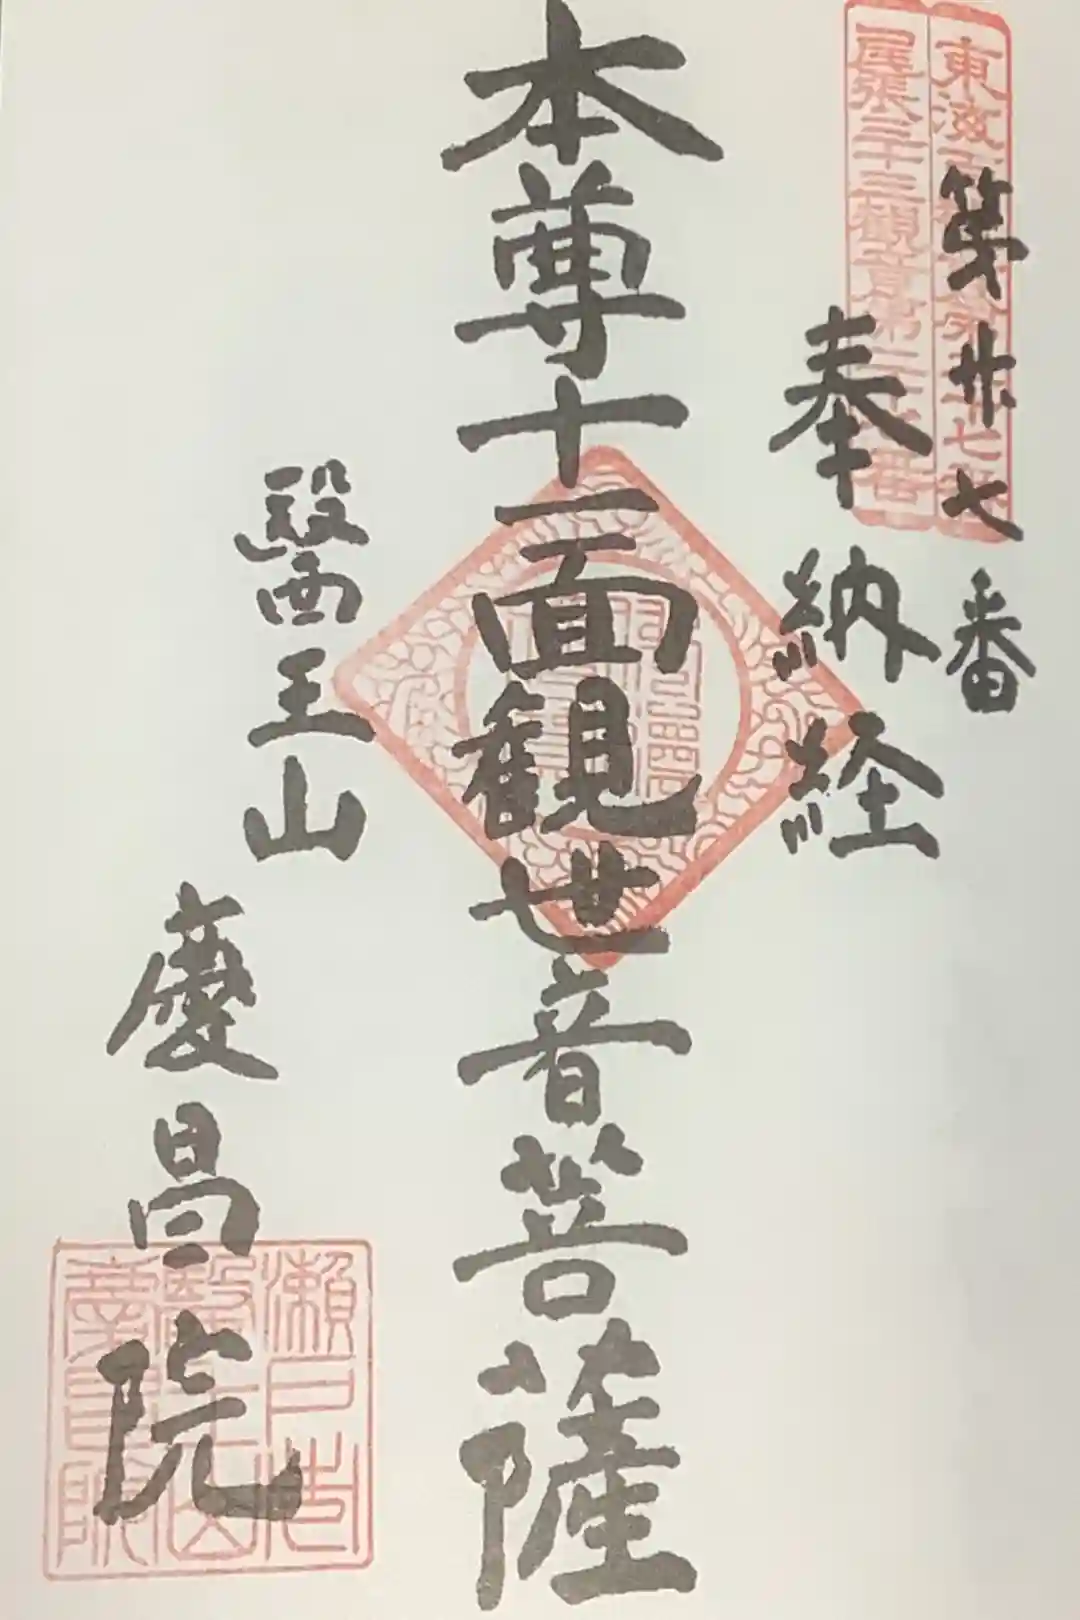 第廿七番
奉納経
本尊十一面観世音菩薩
醫王山
慶昌院
尾張三十三観音第二十番
瀬戸市
醫王山
慶昌院